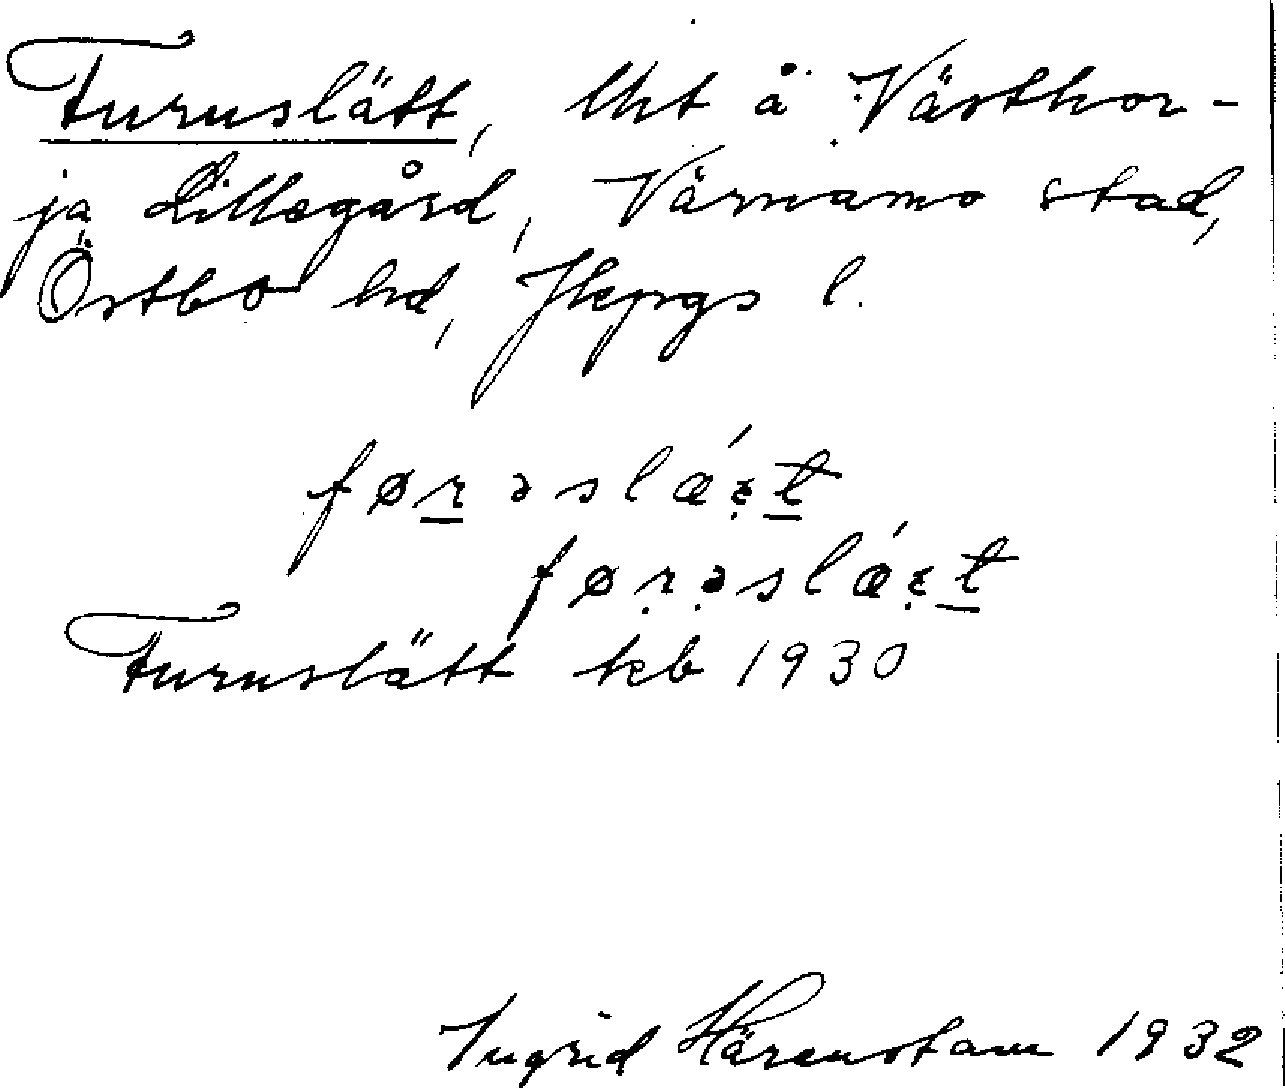 Furuslätt, lht å Västhor-
ja Lillegård, Värnamo stad,
Östbo hd, Jkpgs l.
førəslǽt
førəslǽt
Furuslätt tkb 1930
Ingrid Härenstam 1932